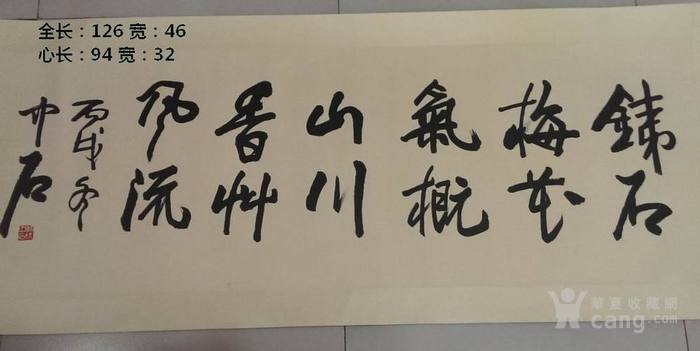 全长：126 宽：46
心长：94 宽：32
銕石
梅花
氣概
山川
香艸
風流
丙戌冬
中石
華夏收藏網
cang.com